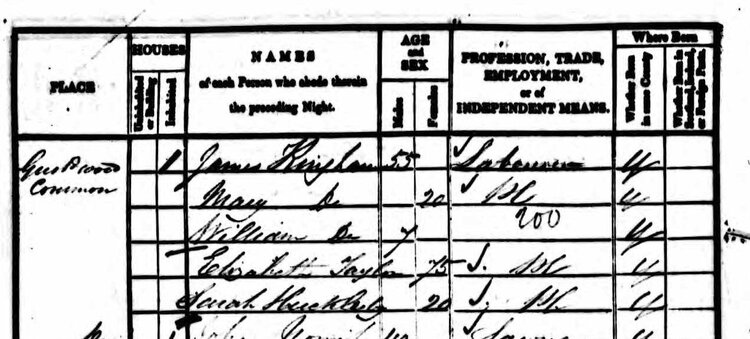 PLACE
HOUSES
Uninhabited or Building
Inhabited
NAMES
of each Person who abode therein
the preceding Night.
AGE
and
SEX
Males
Females
PROFESSION, TRADE,
EMPLOYMENT,
or of
INDEPENDENT MEANS.
Where Born
Whether Born
in same County
Whether Born in
Scotland, Ireland,
or Foreign Parts.
Common 1 James 55 Labourer y
Mary Do 20 y
200
William Do 7 y
Elizabeth Taylor 75 y
Sarah 20 y